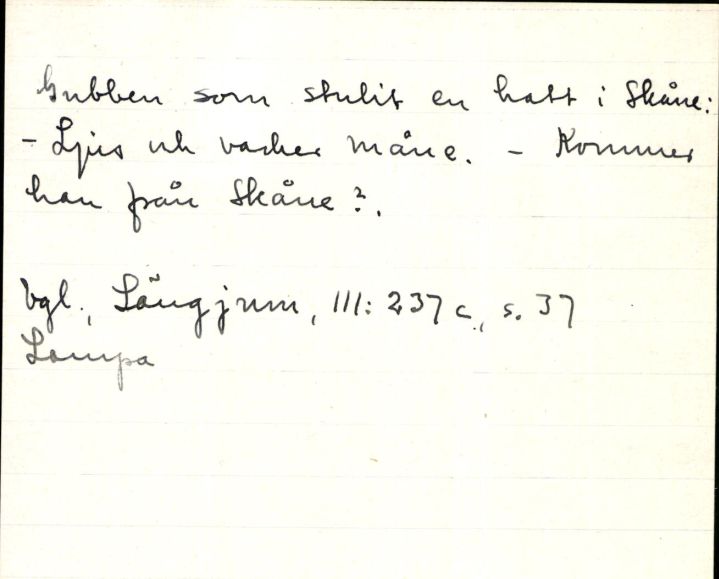 Gubben som stulit en hatt i Skåne:
- Ljus och vacker måne. - Kommer
han från Skåne?.
Vgl., Långjum, III: 237 c., s. 37
Lampa